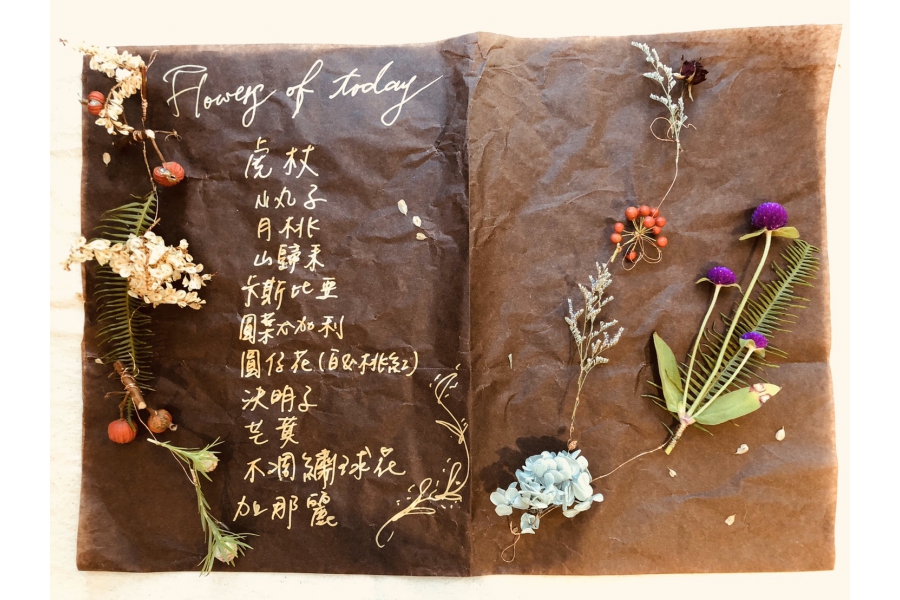 Flowers of today
虎杖
山丸子
月桃
山歸來
卡斯比亞
圓葉尤加利
圓仔花(白&桃紅)
決明子
芒萁
不凋繡球花
加那麗